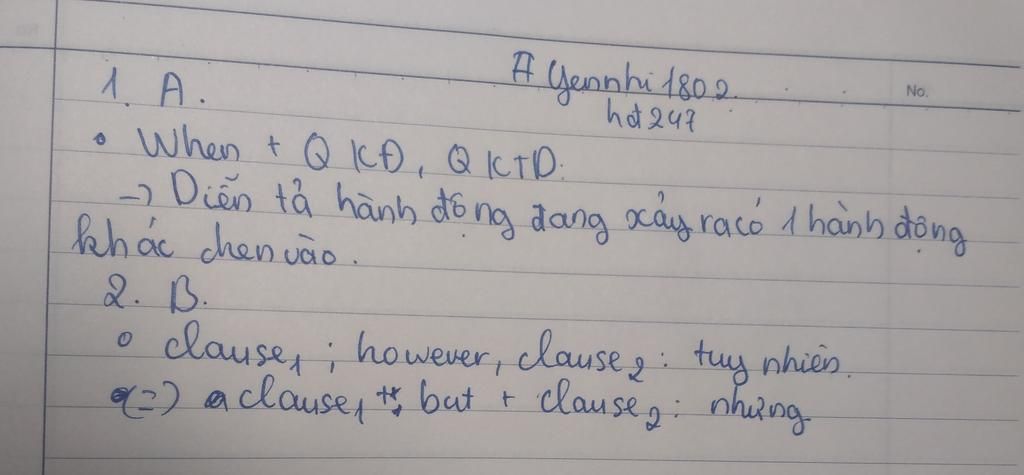 No.
Yennhi1802.
hđ247
1. A.
• When + QKĐ, QKTD.
→ Diễn tả hành động đang xảy ra có 1 hành động
khác chen vào.
2. B.
• clause₁ ; however, clause₂ : tuy nhiên.
(=) clause₁ , but + clause₂ : nhưng